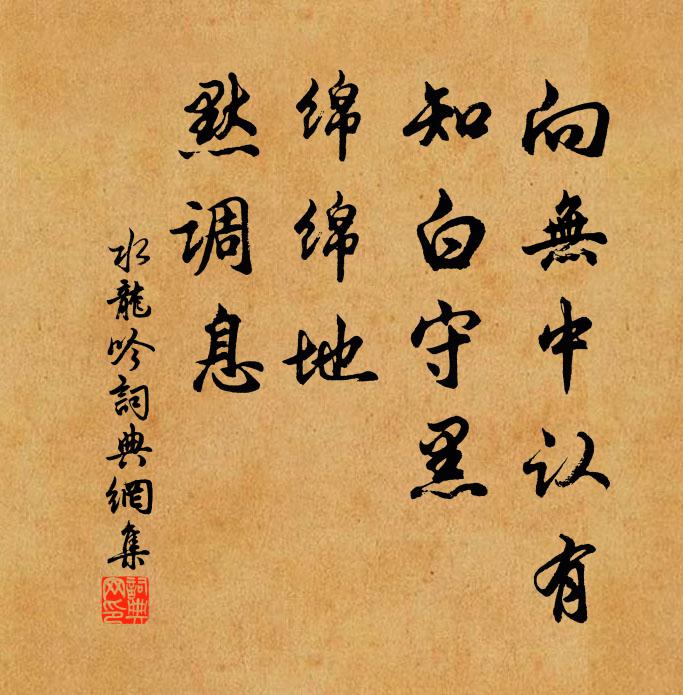 向無中认有
知白守黑
绵绵地
默调息
水龍吟詞典網集
詞典
网印